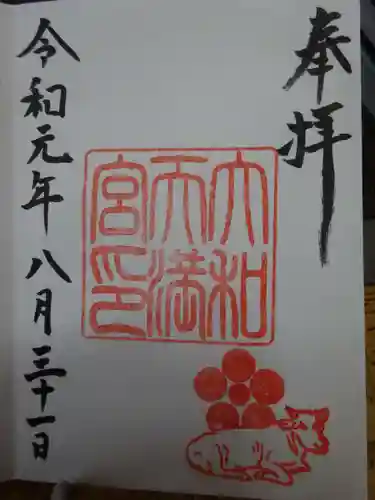 奉拝
大和
天満
宮印
令和元年八月三十一日